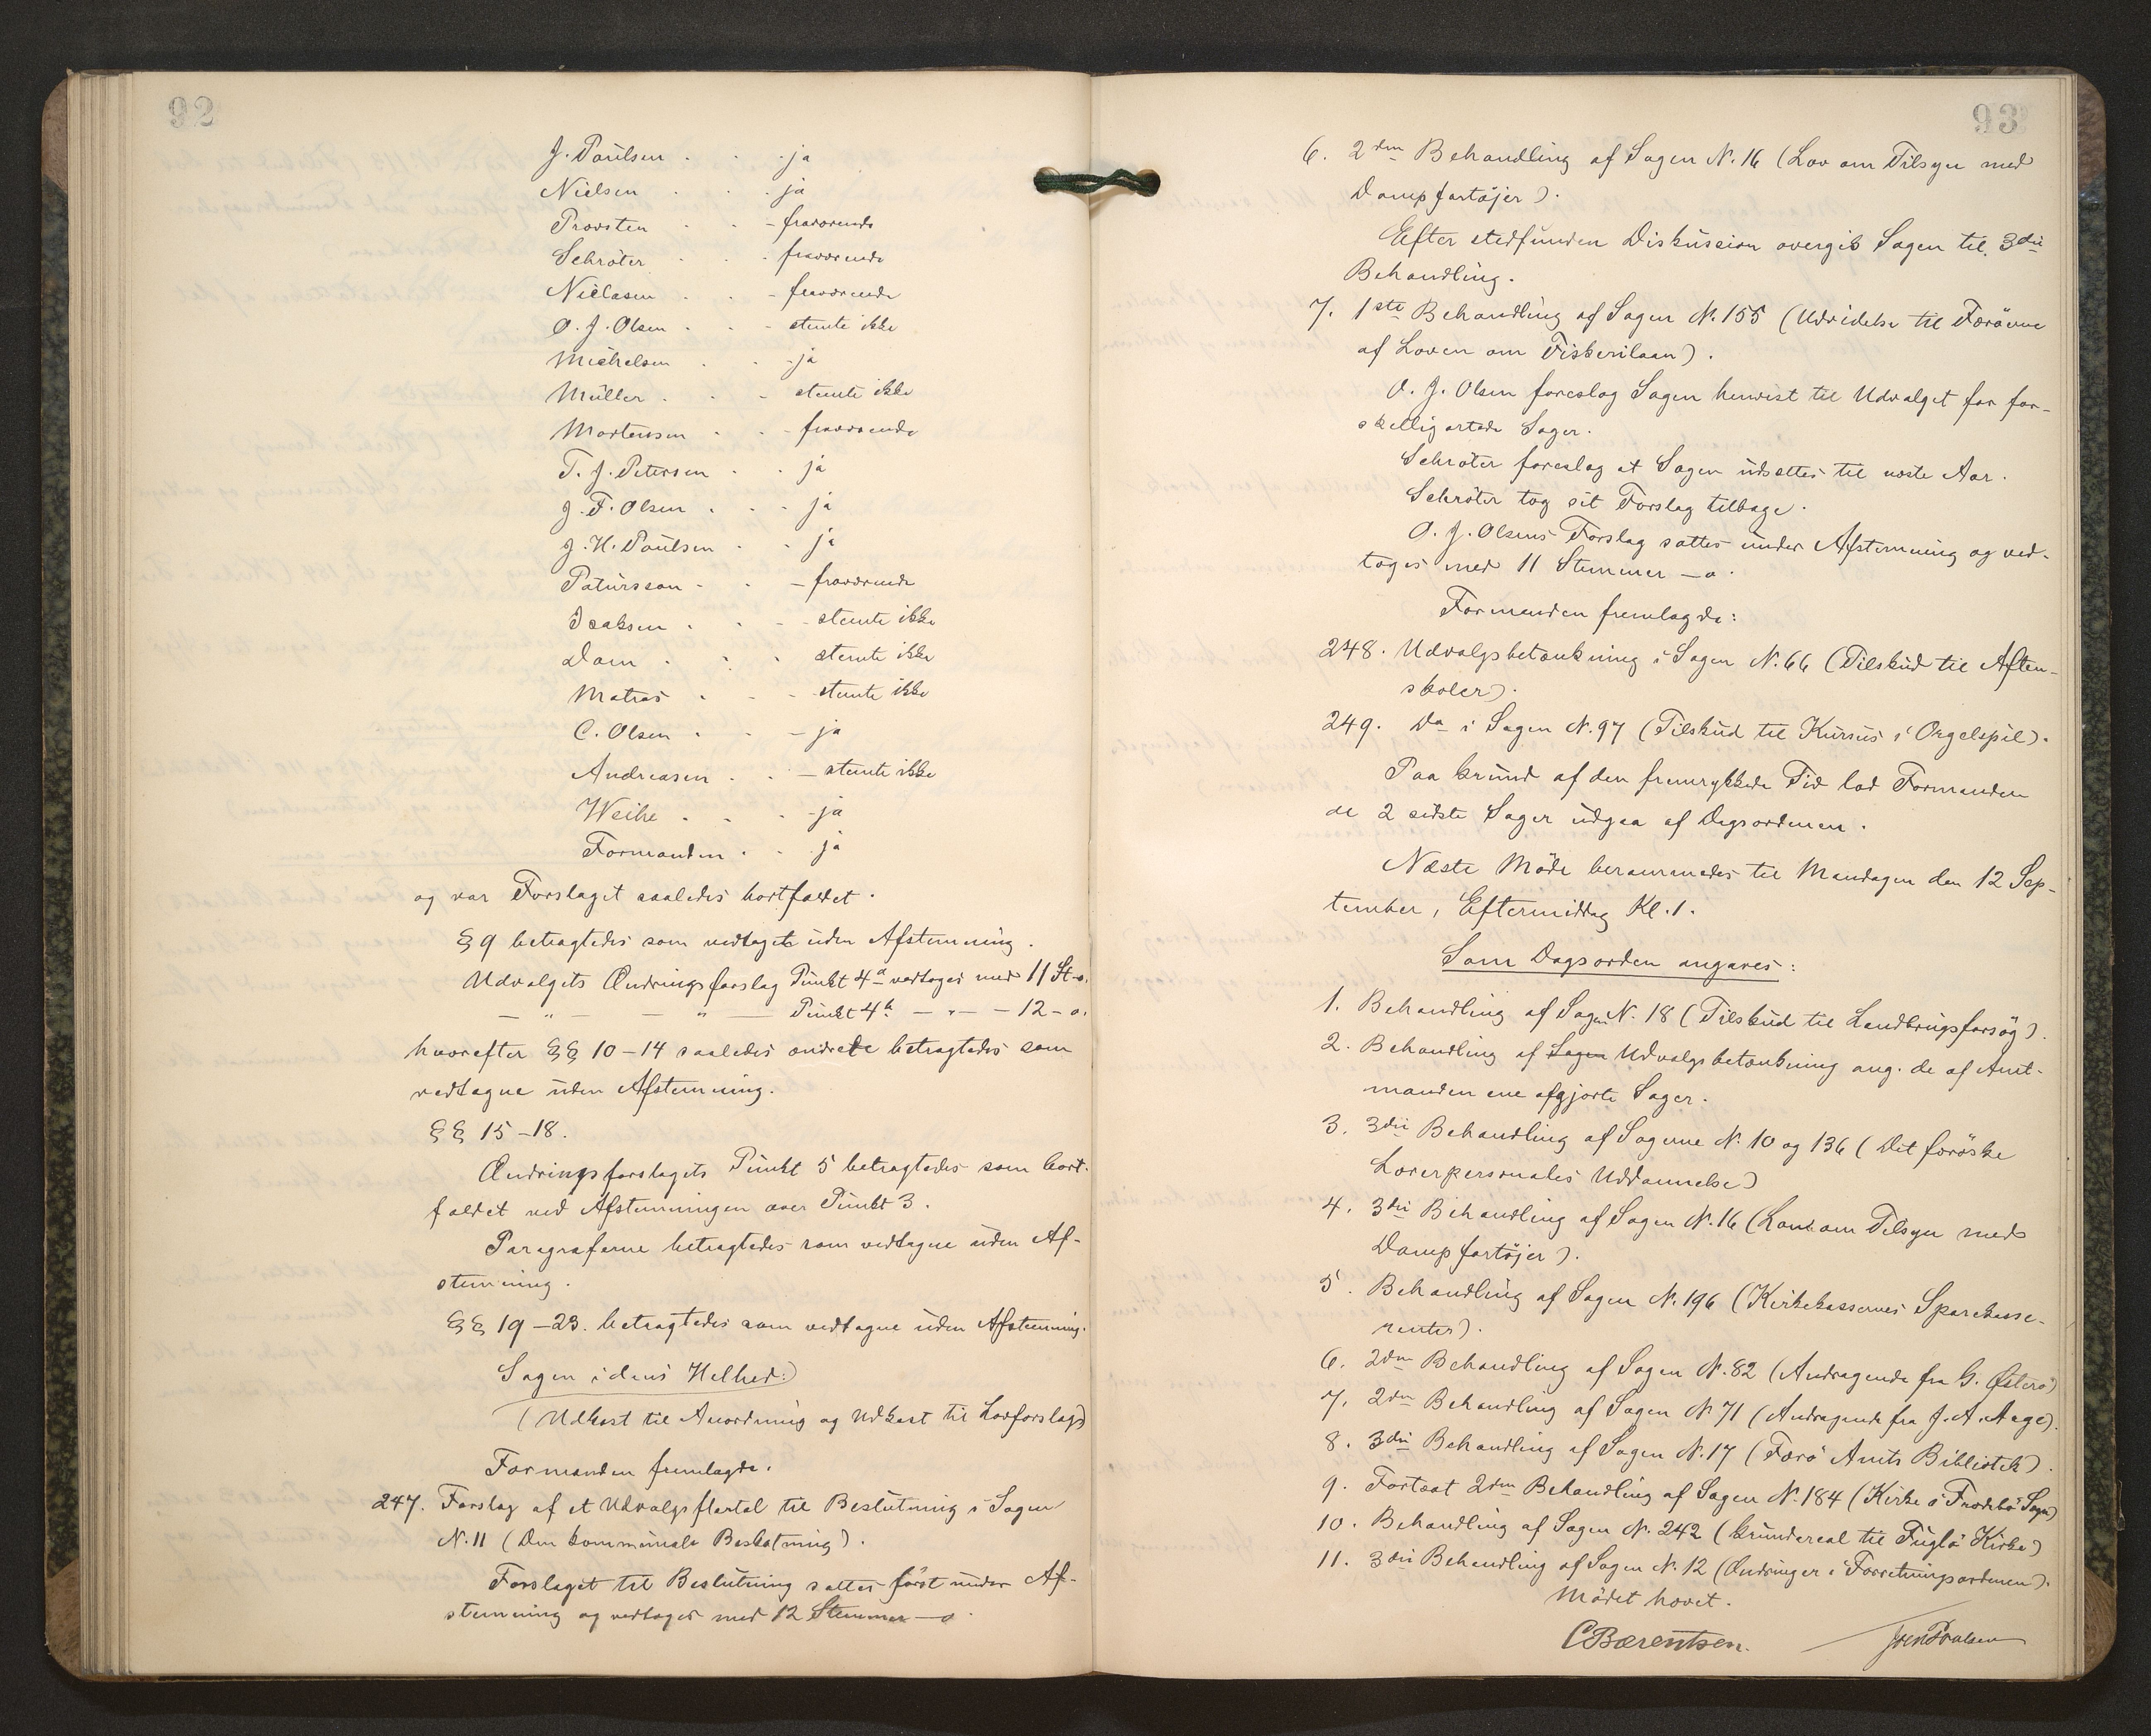 92
J. Poulsen . . . ja
Nielsen . . . ja
Provsten . . - fraværende
Schröter . . . fraværende
Niclasen . . - fraværende
O. J. Olsen . . - stemte ikke
Michelsen . . - ja
Müller . . - stemte ikke
Mortensen . . - fraværende
T. J. Petersen . . ja
J. F. Olsen . . . ja
J. H. Poulsen . . ja
Patursson - . - fraværende
Isaksen . . - stemte ikke
Dam . . . stemte ikke
Matras . . - stemte ikke
C. Olsen . . - ja
Andreasen . . - stemte ikke
Weihe . . . ja
Formanden . . ja
og var Forslaget saaledes bortfaldet.
§ 9 betragtedes som vedtaget uden Afstemning.
Udvalgets Ændringsforslag Punkt 4a vedtoges med 11 St - o.
— " — — " — Punkt 4b — " — — 12 - o.
hvorefter §§ 10-14 saaledes ændrede betragtedes som
vedtagne uden Afstemning.
§§ 15-18.
Ændringsforslagets Punkt 5 betragtedes som bort-
faldet ved Afstemningen over Punkt 3.
Paragraferne betragtedes som vedtagne uden Af-
stemning.
§§ 19-23. betragtedes som vedtagne uden Afstemning.
Sagen i dens Helhed:)
(Udkast til Anordning og Udkast til Lovforslag)
Formanden fremlagde.
247. Forslag af et Udvalgsflertal til Beslutning i Sagen
N. 11 (Den kommunale Beskatning).
Forslaget til Beslutning sattes först under Af-
stemning og vedtoges med 12 Stemmer - o.
93
6. 2den Behandling af Sagen N. 16 (Lov om Tilsyn med
Dampfartöjer).
Efter stedfunden Diskussion overgik Sagen til 3die
Behandling.
7. 1ste Behandling af Sagen N. 155 (Udvidelse til Færöerne
af Loven om Fiskerilaan).
O. J. Olsen foreslog Sagen henvist til Udvalget for for-
skelligartede Sager.
Schröter foreslog at Sagen udsættes til næste Aar.
Schröter tog sit Forslag tilbage.
O. J. Olsens Forslag sattes under Afstemning og ved-
toges med 11 Stemmer - o.
Formanden fremlagde:
248. Udvalgsbetænkning i Sagen N. 66 (Tilskud til Aften-
skoler).
249. Do i Sagen N. 97 (Tilskud til Kursus i Orgelspil).
Paa Grund af den fremrykkede Tid lod Formanden
de 2 sidste Sager udgaa af Dagsordenen.
Næste Möde berammedes til Mandagen den 12 Sep-
tember, Eftermiddag Kl. 1.
Som Dagsorden angaves:
1. Behandling af Sagen N. 18 (Tilskud til Landbrugsforsøg).
2. Behandling af Sagen Udvalgsbetænkning ang. de af Amt-
manden ene afgjorte Sager.
3. 3die Behandling af Sagerne N. 10 og 136 (Det færöske
Lærerpersonales Uddannelse)
4. 3die Behandling af Sagen N. 16 (Lov om Tilsyn med
Dampfartöjer).
5. Behandling af Sagen N. 196 (Kirkekassernes Sparekasse-
renter).
6. 2den Behandling af Sagen N. 82 (Andragende fra G. Østerö)
7. 2den Behandling af Sagen N. 71 (Andragende fra J. A. Aage).
8. 3die Behandling af Sagen N. 17 (Færö Amts Bibliotek).
9. Fortsat 2den Behandling af Sagen N. 184 (Kirke i Frodebö Sogn)
10. Behandling af Sagen N. 242 (Grundareal til Fuglö Kirke)
11. 3die Behandling af Sagen N. 12 (Ændringer i Forretningsordenen).
Mödet hævet.
C Bærentsen. Joen Poulsen